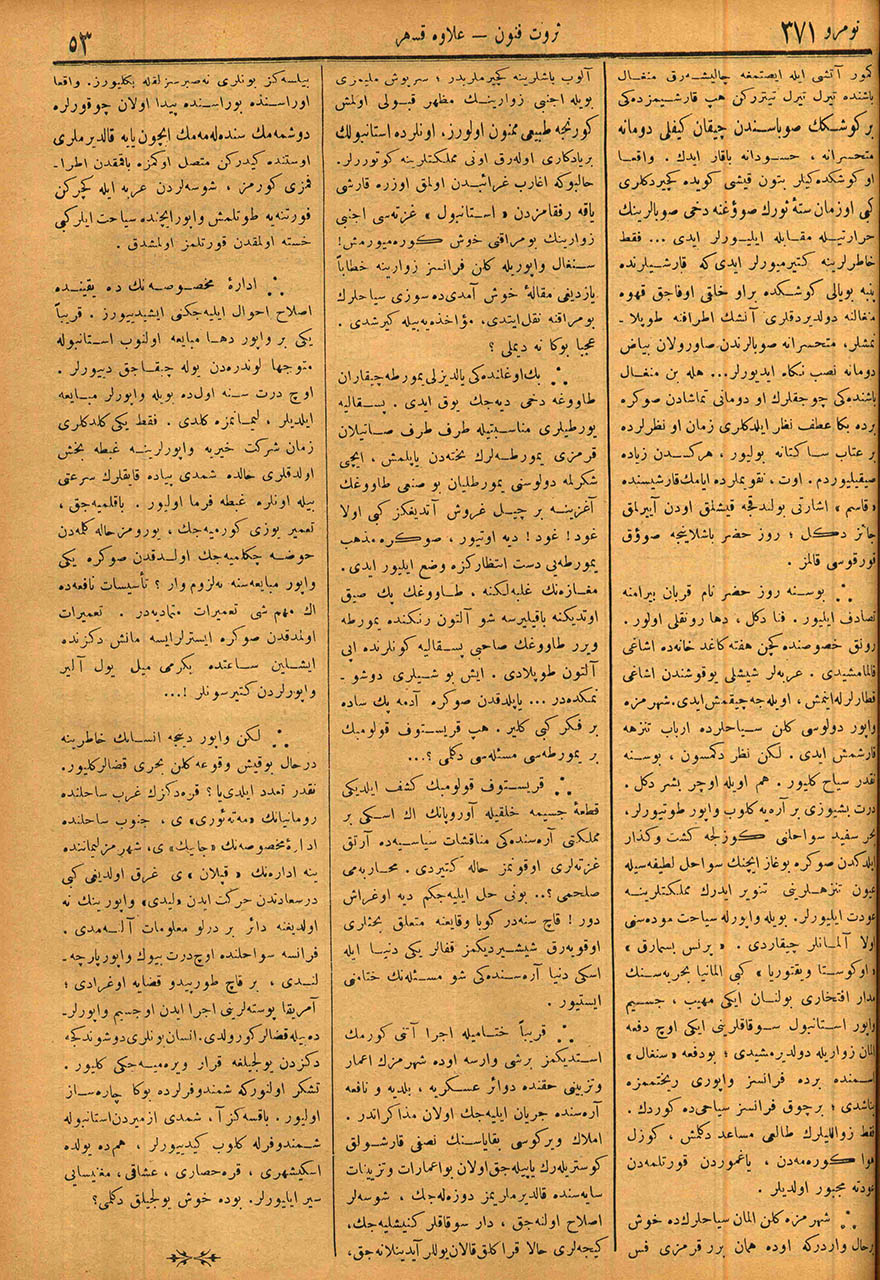 نومرو ٣٧١
ثروت فنون — علاوه قسمر
٥٣
كمور آتشى ايله ايصتمغه چاليشه‌رق منغال
باشنده تيرل تيرل تيترركن هپ قارشيمزده‌كى
بر كوشكك صوباسندن چيقان كيفلى دومانه
متحسرانه ، حسودانه باقار ايدك . واقعا
او كوشكده‌كيلر بتون قيشى كويده كچيردكلرى
كى اوزمان ستهٔ ئورك صوؤغنه دخى صوبالرينك
حرارتيله مقابله ايليورلر ايدى ... فقط
خاطرلرينه كتيرميورلر ايدى‌كه قارشيلرنده
پنبه بويالى كوشكده براو خلقى اوفاجق قهوه
منغالنه دولديردقلرى آتشك اطرافنه طوپلا ـ
نمشلر، متحسرانه صوبالرندن صاورولان بياض
دومانه نصب نكاه ايديورلر... هله بن منغال
باشنده‌كى چوجقلرك او دومانى تماشادن صوكره
برده بكا عطف نظر ايلدكلرى زمان او نظرلرده
بر عتاب ساكتانه بوليور ، هركسدن زياده
صيقيليوردم . اوت ، تقويملرده ايامك قارشيسنده
« قاسم » اشارتى بولندقجه قيشلق اودن آيرلمق
جائز دكل ؛ روز حضر باشلاينجه صوؤق
قورقوسى قالمز .
∴ بوسنه روز حضر تام قربان بيرامنه
تصادف ايليور . فنا دكل ، دها رونقلى اولور .
رونق خصوصنده كچن هفته كاغد خانه‌ده اشاغى
قالمامشيدى . عربه‌لر شيشلى يوقوشندن اشاغى
قطارلرله اينمش ، اويله‌جه چيقمش ايدى. شهرمزه
واپور دولوسى كلن سياحلرده ارباب تنزهه
قارشمش ايدى . لكن نظر دكمسون ، بوسنه
نقدر سياح كليور . هم اويله اوچر بشر دكل .
درت بشيوزى بر آره‌يه كلوب واپور طوتيورلر،
بحر سفيد سواحلنى كوزلجه كشت وكذار
ايلدكدن صوكره بوغاز ايچنك سواحل لطيفه‌سيله
عيون تنزهلرينى تنوير ايدرك مملكتلرينه
عودت ايليورلر. بويله واپورله سياحت موده‌سنى
اولا آلمانلر چيقاردى . « پرنس بسمارق »
« اوكوستا ويقتوريا » كبى المانيا بحريه‌سنك
مدار افتخارى بولنان ايكى مهيب ، جسيم
واپور استانبول سوقاقلرينى ايكى اوچ دفعه
المان زواريله دولديرمشيدى ؛ بودفعه «سنغال»
اسمنده برده فرانسز واپورى ريختممزه
يناشدى ؛ برچوق فرانسز سياحى‌ده كوردك .
فقط زوالليلرك طالعى مساعد دكلمش ، كوزل
هوا كوره‌مه‌دن ، ياغموردن قورتلمه‌دن
عودته مجبور اولديلر .
∴ شهرمزه كلن المان سياحلرك‌ده خوش
برحال واردركه اوده همان برر قرمزى فس
آلوب باشلرينه كچيرملريدر ؛ سرپوش مليمزى
بويله اجنبى زوارينك مظهر قبولى اولمش
كورنجه طبيعى ممنون اولورز، اونلرده استانبولك
بريادكارى اوله‌رق اونى مملكتلرينه كوتوررلر.
حالبوكه اغارب غرائبدن اولمق اوزره قارشى
ياقه رفقامزدن « استانبول » غزته‌سى اجنبى
زوارينك بومراقنى خوش كوره‌ميورمش!
سنغال واپوريله كلن فرانسز زوارينه خطاباً
يازديغى مقالهٔ خوش آمدى‌ده سوزى سياحلرك
بومراقنه نقل ايتدى، مؤاخذه‌يه‌بيله كيرشدى .
عجبا بوكا نه ديملى ؟
∴ بك‌اوغلنده‌كى يالديزلى يمورطه چيقاران
طاووغه دخى ديه‌جك يوق ايدى . پسقاليه
يورطيلرى مناسبتيله طرف طرف صاتيلان
قرمزى يمورطه‌لرك تخته‌دن ياپلمش ، ايچى
شكرلمه دولوسنى يمورطليان بو صنعى طاووغك
آغزينه بر چيل غروش آتديغكز كبى اولا
غود! غود! ديه اوتيور ، صوكره مذهب
يمورطه‌يى دست انتظاركزه وضع ايليور ايدى.
مغازه‌نك غلبه‌لكنه ، طاووغك پك صيق
اوتديكنه باقيليرسه شو آلتون رنكنده يمورطه
ويرر طاووغك صاحبى پسقاليه كونلرنده اپى
آلتون طوپلادى . ايش بو شيلرى دوشو ـ
نمكده‌در ... ياپلدقدن صوكره آدمه پك ساده
بر فكر كبى كلير . هپ قريستوف قولومبك
بر يمورطه‌سى مسئله‌سى دكلمى ؟...
∴ قريستوف قولومبك كشف ايلديكى
قطعهٔ جسيمه خلقيله آوروپانك اك اسكى بر
مملكتى آره‌سنده‌كى مناقشات سياسيه‌ده آرتق
غزته‌لرى اوقونمز حاله كتيردى . محاربه‌مى
صلحمى ؟.. بونى حل ايليه‌جكم ديه اوغراش
دور ! قاچ سنه‌در كوبا وقايعنه متعلق بحثلرى
اوقويه‌رق شيشيرديكمز قفالر يكى دنيا ايله
اسكى دنيا آره‌سنده‌كى شو مسئله‌نك ختامنى
ايستيور .
∴ قريباً ختاميله اجرا آتنى كورمك
استديكمز برشى وارسه اوده شهرمزك اعمار
وتزيينى حقنده دوائر عسكريه ، بلديه و نافعه
آره‌سنده جريان ايليه‌جك اولان مذاكراتدر .
املاك ويركوسى بقاياسنك نصفى قارشولق
كوستريله‌رك ياپيله‌جق‌اولان بواعمارات وتزيينات
سايه‌سنده قالديرملريمز دوزه‌له‌جك ، شوسه‌لر
اصلاح اولنه‌جق ، دار سوقاقلر كنيشليه‌جك،
كيجه‌لرى حالا قراكلق قالان يوللر آيدينلانه‌جق،
بيلسه‌كز بونلرى نه صبرسزلقله بكليورز. واقعا
اوراسنده بوراسنده پيدا اولان چوقورلره
دوشمه‌مك سنده‌له‌مه‌مك ايچون يايه قالديرملرى
اوستنده كيدركن متصل اوكمزه باقمقدن اطرا ـ
فمزى كورمز ، شوسه‌لردن عربه ايله كچركن
فورتنه‌يه طوتلمش واپورايچنده سياحت ايلركبى
خسته اولمقدن قورتلمز اولمشدق .
∴ ادارهٔ مخصوصه‌نك ده يقينده
اصلاح احوال ايليه‌جكنى ايشيدييورز . قريباً
يكى بر واپور دها مبايعه اولنوب استانبوله
متوجها لوندره‌دن يوله چيقاجق دييورلر .
اوچ درت سنه اول‌ده بويله واپورلر مبايعه
ايلديلر ، ليمانمزه كلدى . فقط يكى كلدكلرى
زمان شركت خيريه واپورلرينه غبطه بخش
اولدقلرى حالده شمدى پياده قايقلرك سرعتى
بيله اونلره غبطه فرما اوليور . باقلميه‌جق ،
تعمير يوزى كورميه‌جك ، يورومز حاله كلمه‌دن
حوضه چكلميه‌جك اولدقدن صوكره يكى
واپور مبايعه‌سنه نه‌لزوم وار ؟ تأسيسات نافعه‌ده
اك مهم شى تعميرات متماديه‌در . تعميرات
اولمدقدن صوكره ايسترلرايسه مانش دكزنده
ايشلين ساعتده يكرمى ميل يول آلير
واپورلردن كتيرسونلر !...
∴ لكن واپور دينجه انسانك خاطرينه
درحال بوقيش وقوعه كلن بحرى قضالركليور.
نقدر تعدد ايلدى‌يا؟ قره‌دكزك غرب ساحلنده
رومانيانك «مه‌ته‌ئورى» ى ، جنوب ساحلنده
ادارهٔ‌مخصوصه‌نك «جانيك» ى، شهرمز ليماننده
ينه اداره‌نك « قپلان » ى غرق اولديغى كبى
درسعادتدن حركت ايدن «ليدى» واپورينك نه
اولديغنه دائر بر درلو معلومات آلنه‌مدى .
فرانسه سواحلنده اوچ‌درت بيوك واپور پارچه ـ
لندى ، بر قاچ طورپيدو قضايه اوغرادى ؛
آمريقا پوسته‌لرينى اجرا ايدن اوجسيم واپورلر ـ
ده‌بيله قضالر كورولدى. انسان بونلرى دوشوندكجه
دكزدن يولجيلغه قرار ويره‌ميه‌جكى كليور .
تشكر اولنوركه شمندوفرلرده بوكا چاره‌ساز
اوليور . باقسه‌كز آ ، شمدى ازميردن استانبوله
شمندوفرله كلوب كيدييورلر ، هم‌ده يولده
اسكيشهرى ، قره‌حصارى ، عشاقى ، مغنيسايى
سير ايليورلر. بوده خوش يولجيلق دكلمى؟